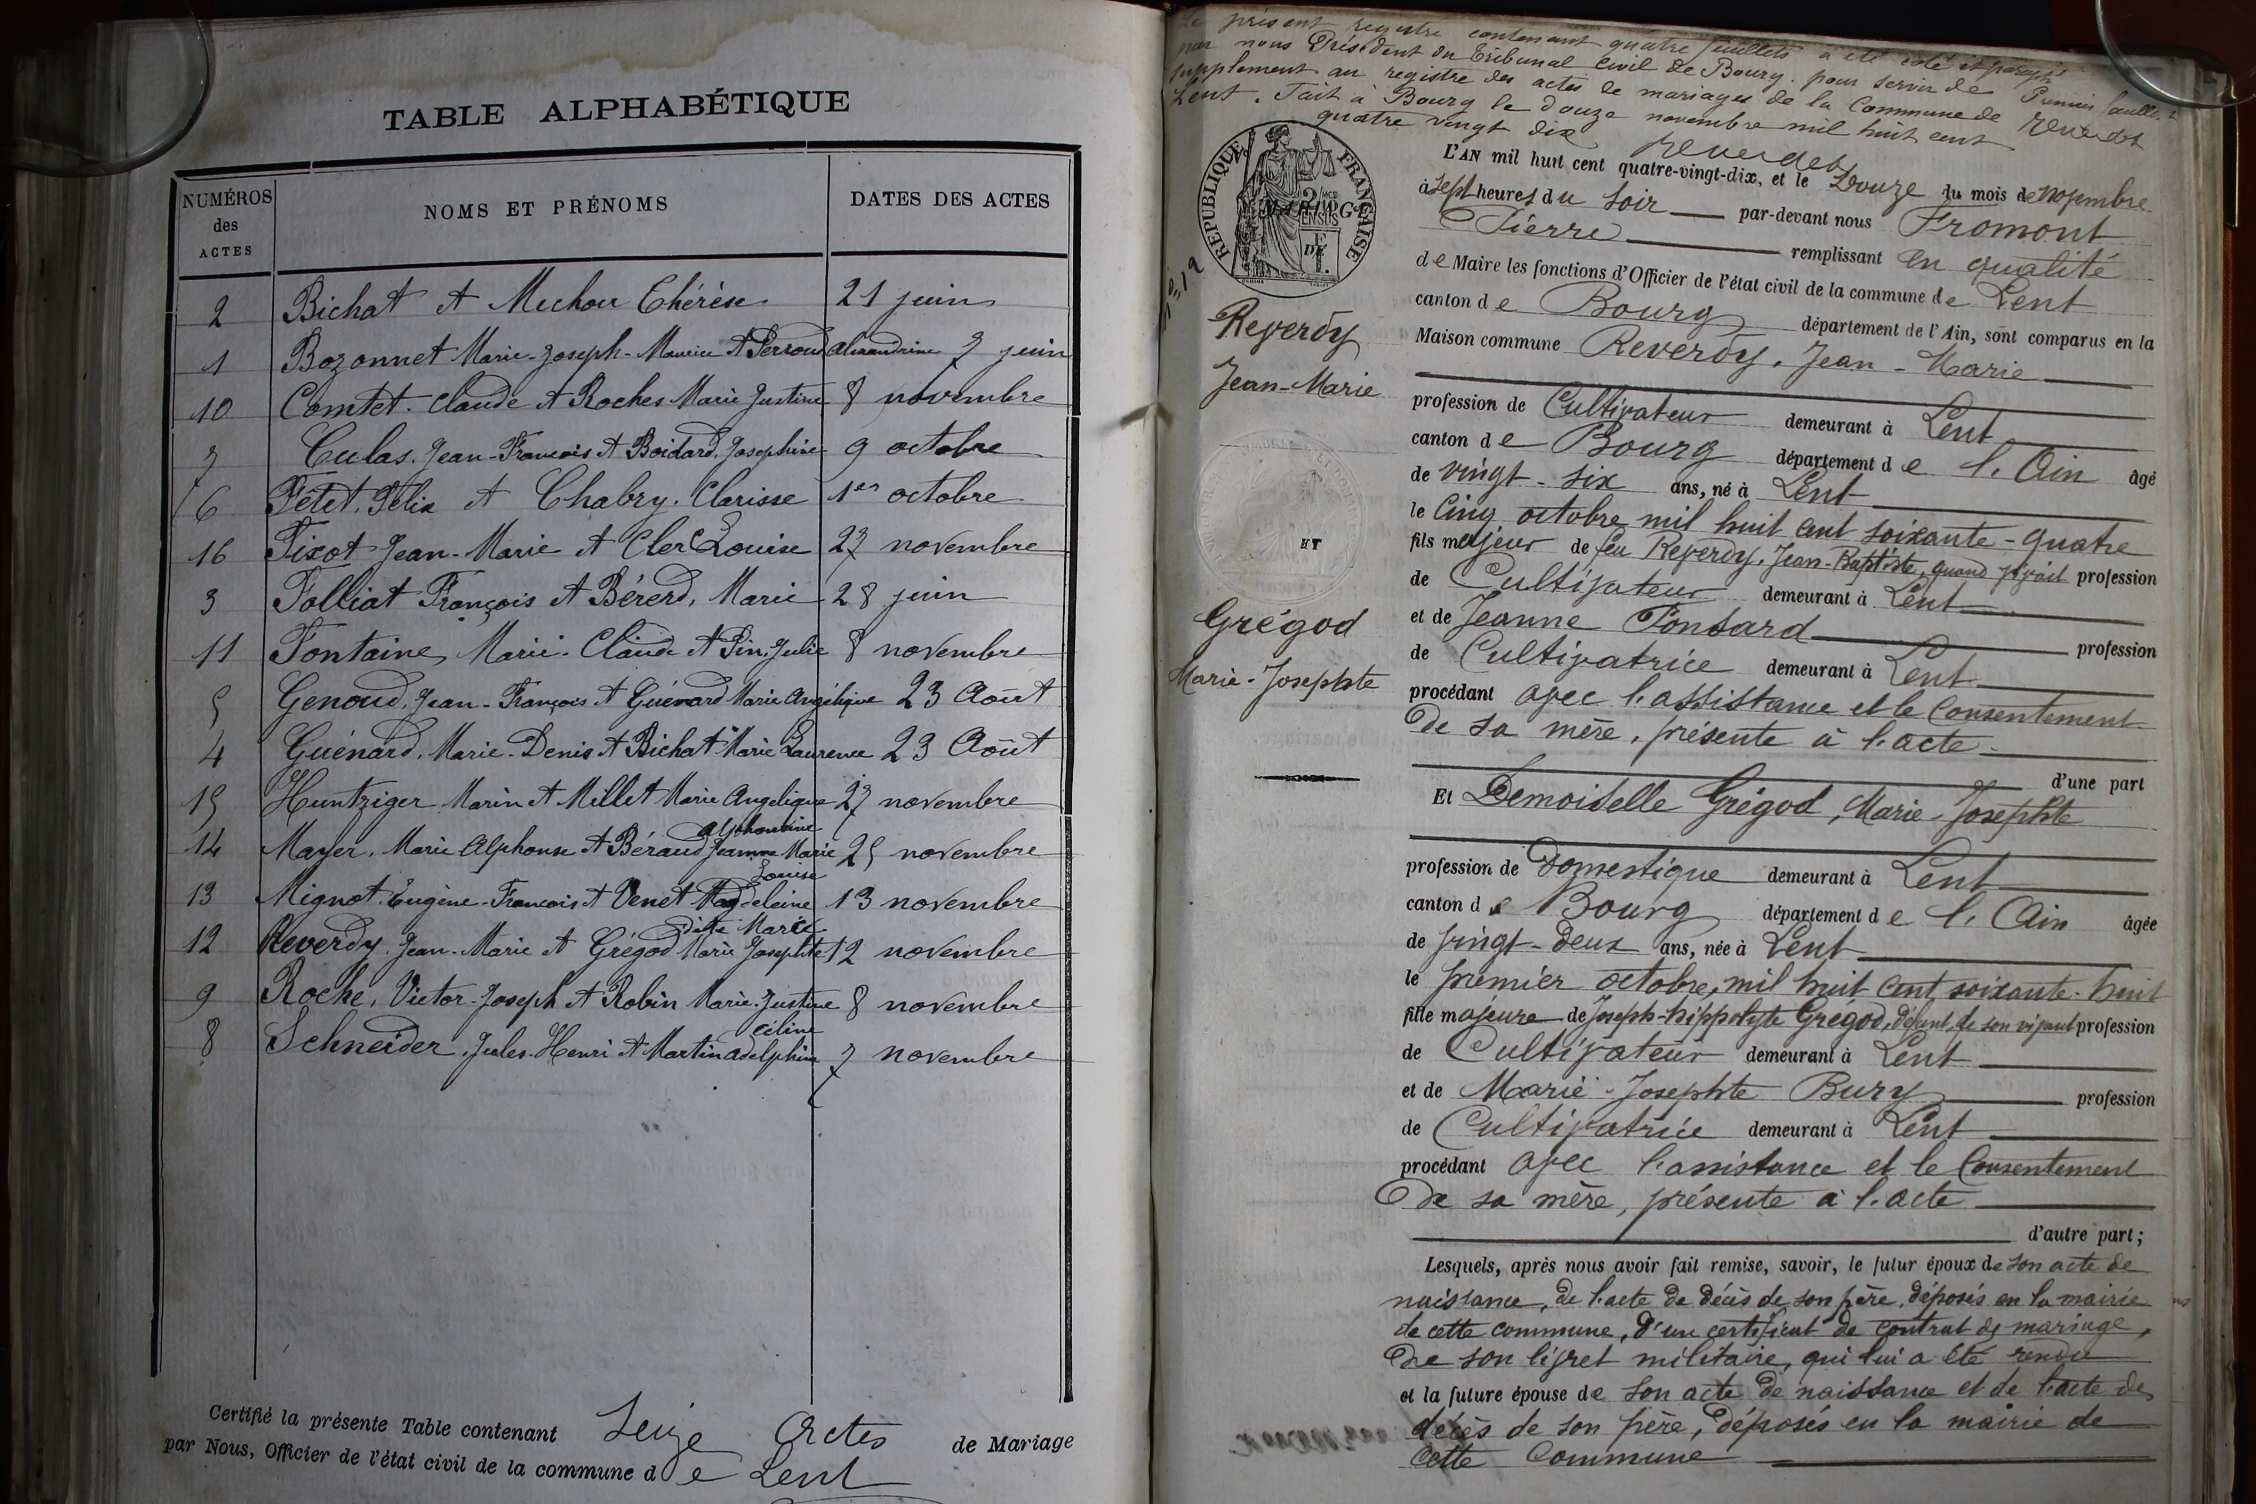 TABLE ALPHABÉTIQUE
NUMÉROS des ACTES
NOMS ET PRÉNOMS
DATES DES ACTES
2 Bichat et Michou Thérèse 21 juin
1 Bozonnet Marie-Joseph-Maurice et Perroud Alexandrine 7 juin
10 Comtet. Claude et Roches Marie Justine 8 novembre
7 Culas. Jean-François et Boidard. Josephine 9 octobre
6 Fétet. Félix et Chabry. Clarisse 1er octobre
16 Fixot Jean-Marie et Clerc Louise 27 novembre
3 Folliat François et Bérerd, Marie 28 juin
11 Fontaine, Marie-Claude et Pin, Julie 8 novembre
5 Genoud, Jean-François et Guénard Marie Angélique 23 Août
4 Guénard, Marie-Denis et Bichat Marie Laurence 23 Août
15 Huntziger Marin et Millet Marie Angelique 27 novembre
14 Mayer. Marie Alphonse et Béraud Jeanne Marie Alphonsine 25 novembre
13 Mignot. Eugène-François et Venet Magdeleine Louise 13 novembre
12 Reverdy. Jean-Marie et Grégod Marie Josephte dite Marie 12 novembre
9 Roche, Victor-Joseph et Robin Marie-Justine 8 novembre
8 Schneider. Jules-Henri et Martin Adelphine Céline 7 novembre
Certifié la présente Table contenant Seize Actes de Mariage
par Nous, Officier de l'état civil de la commune de Lent
Le présent registre contenant quatre feuillets a été coté et paraphé
par nous Président du Tribunal civil de Bourg. pour servir de
supplément au registre des actes de mariages de la Commune de
Lent. Fait à Bourg le douze novembre mil huit cent
quatre vingt dix
Premier feuillet
RÉPUBLIQUE FRANÇAISE
N° 12
Reverdy
Jean-Marie
ET
Grégod
Marie-Josephte
L'AN mil huit cent quatre-vingt-dix, et le Douze du mois de novembre
à sept heures du soir par-devant nous Fromont
Pierre remplissant en qualité
de Maire les fonctions d'Officier de l'état civil de la commune de Lent
canton de Bourg département de l'Ain, sont comparus en la
Maison commune Reverdy, Jean-Marie
profession de Cultivateur demeurant à Lent
canton de Bourg département de l'Ain âgé
de vingt-six ans, né à Lent
le Cinq octobre mil huit cent soixante-quatre
fils majeur de feu Reverdy, Jean-Baptiste, quand vivait profession
de Cultivateur demeurant à Lent
et de Jeanne Ponsard profession
de Cultivatrice demeurant à Lent
procédant avec l'assistance et le Consentement
De sa mère, présente à l'acte
d'une part
Et Demoiselle Grégod, Marie-Josephte
profession de Domestique demeurant à Lent
canton de Bourg département de l'Ain âgée
de vingt-deux ans, née à Lent
le premier octobre, mil huit cent soixante-huit
fille majeure de Joseph-hippolyte Grégod, défunt, de son vivant profession
de Cultivateur demeurant à Lent
et de Marie-Josephte Bury profession
de Cultivatrice demeurant à Lent
procédant avec l'assistance et le Consentement
De sa mère, présente à l'acte
d'autre part;
Lesquels, après nous avoir fait remise, savoir, le futur époux de son acte de
naissance, de l'acte de décès de son père, déposés en la mairie
de cette commune, d'un certificat de contrat de mariage,
De son livret militaire, qui lui a été rendu
et la future épouse de son acte de naissance et de l'acte de
décès de son père, déposés en la mairie de
cette Commune